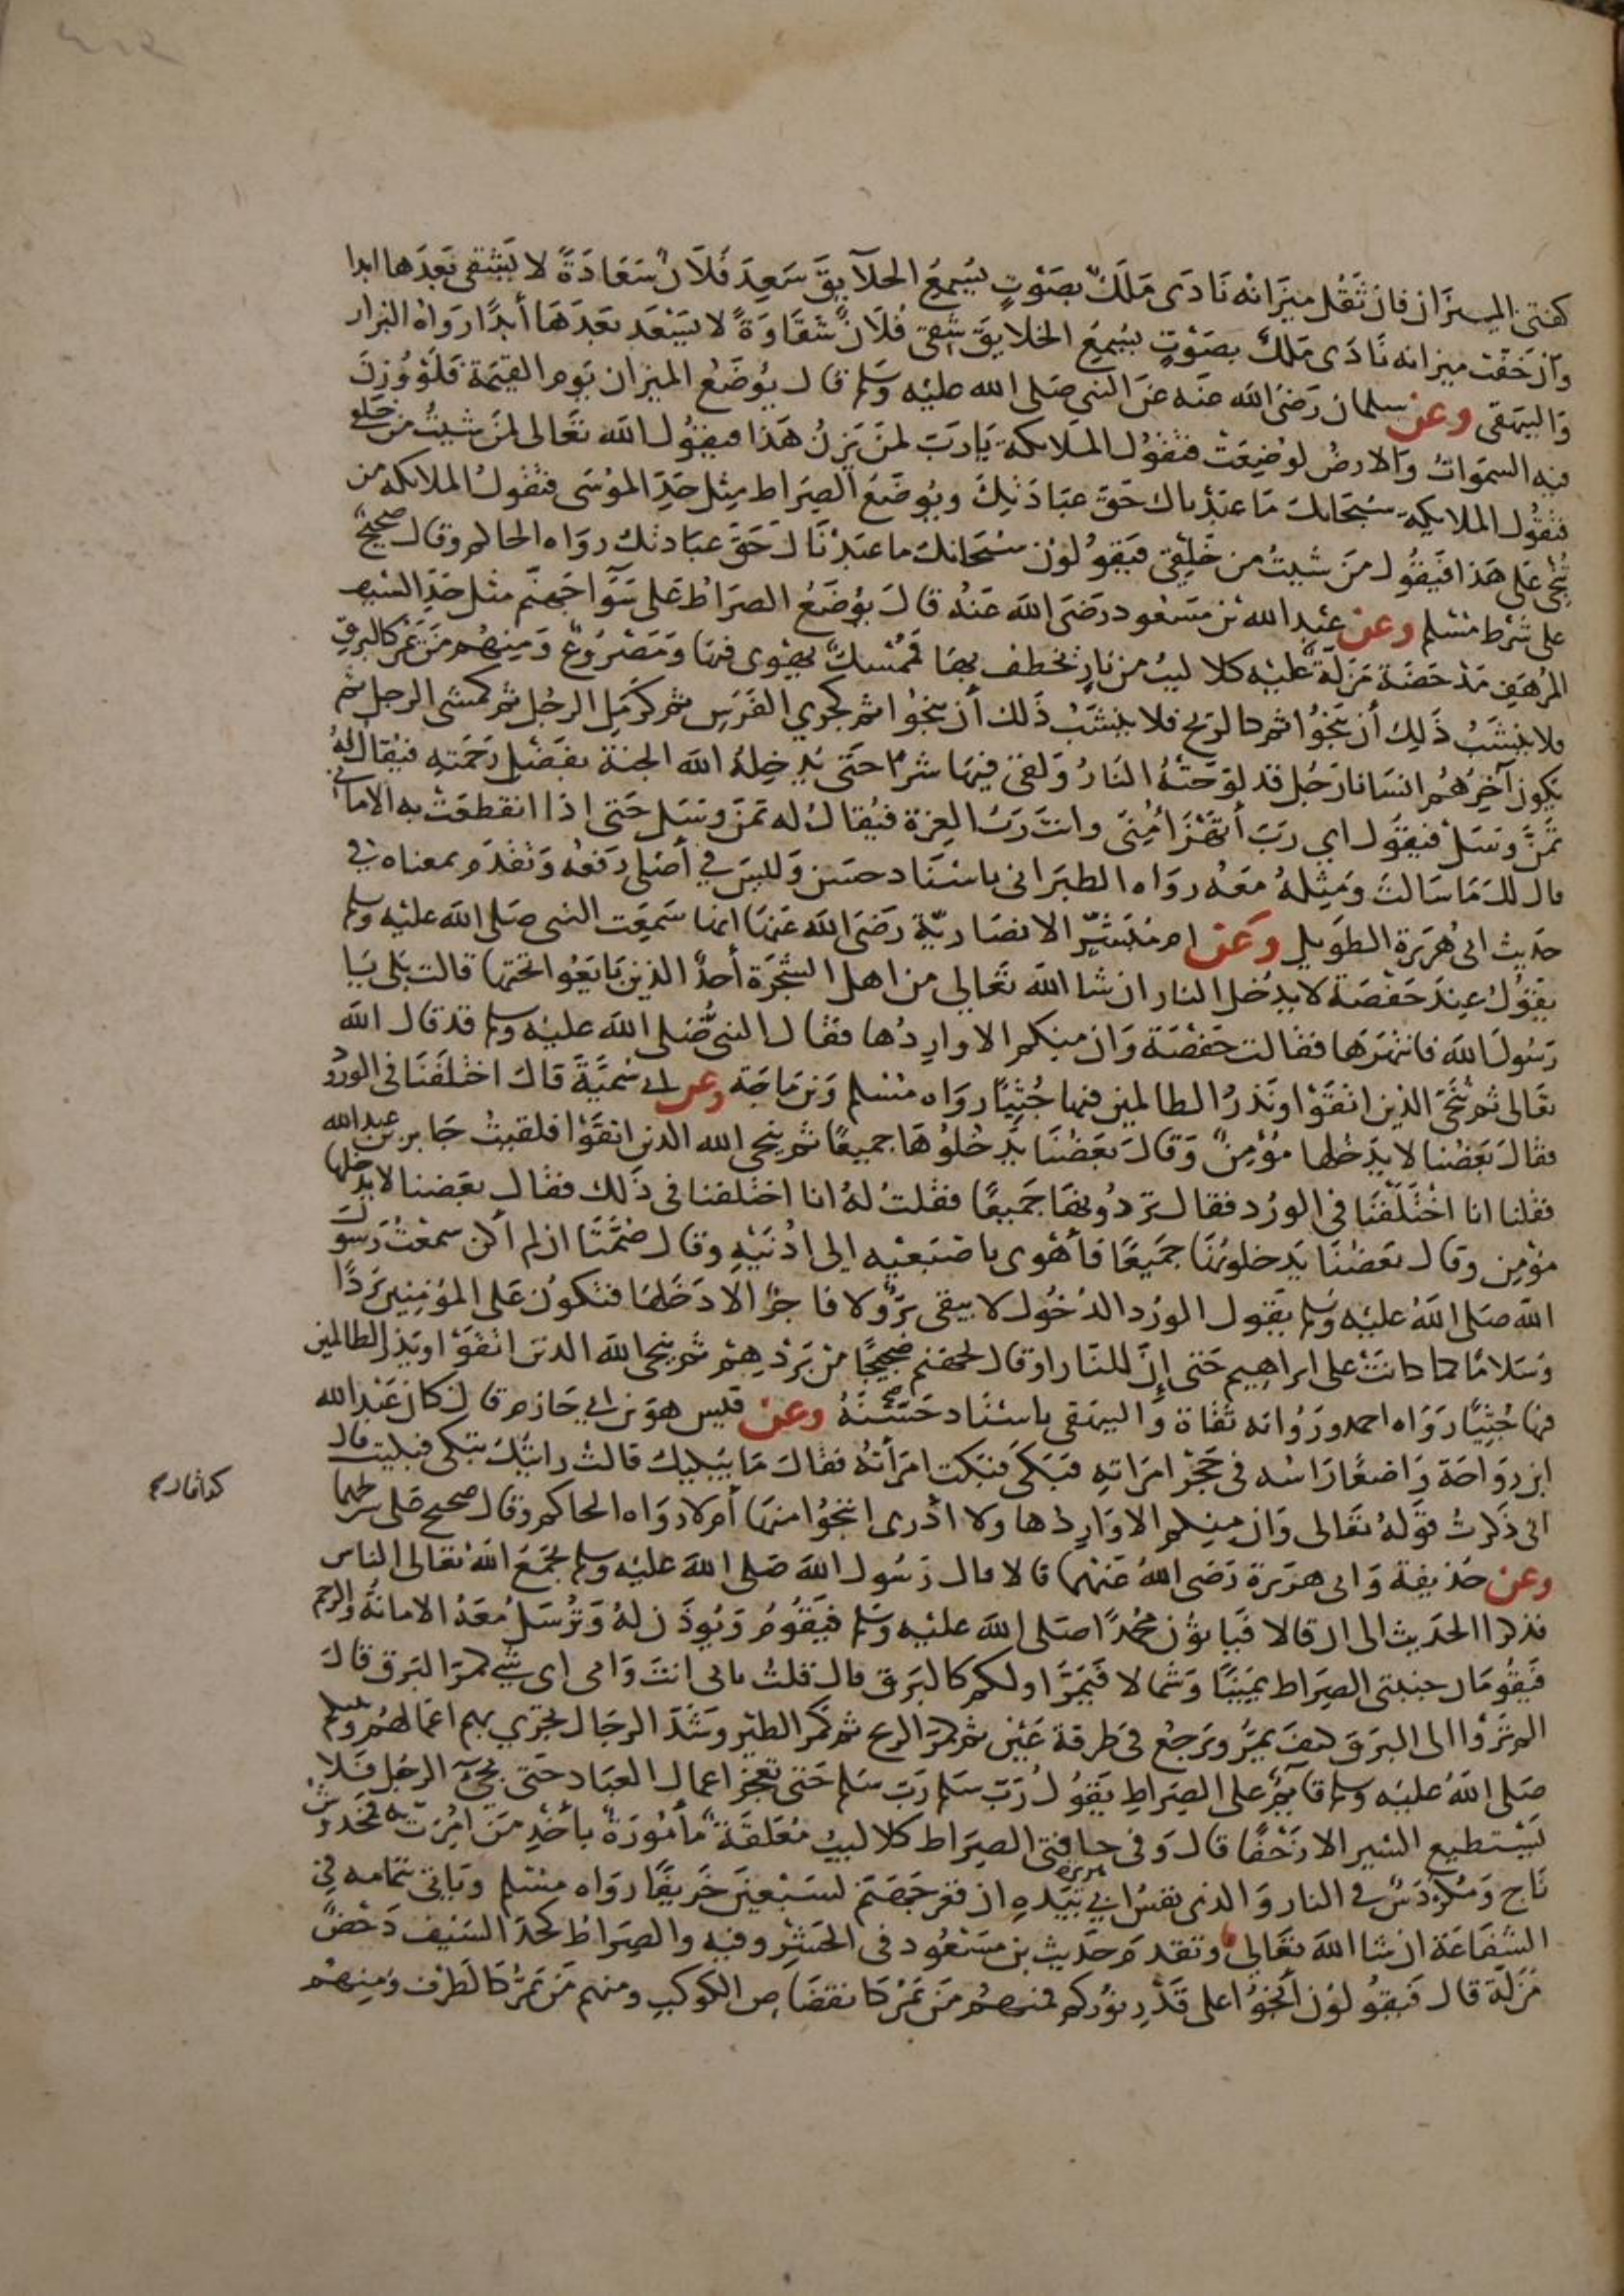 كفتي الميزان فان ثقل ميزانه نادى مَلَكٌ بصَوْتٍ يُسْمِعُ الخلآيقَ سَعِدَ فُلَانٌ سَعَادَةً لا يَشْقى بَعدَها ابدا
وَانْ خَفّت ميزانه نَادَى مَلَكٌ بصَوْتٍ يُسْمِعُ الخلايقَ شقى فُلَانٌ شَقَاوَةً لا يَسْعَد بَعدَهَا أبدًا روَاهُ البزار
وَالبيهقى وعن سلمان رَضىَ الله عنه عَن النبى صَلى الله عليه وَسَلم قال يُوضَعُ الميزان يَوم القيمَة فَلَوْ وُزنَ
فيه السموَاتُ وَالارضُ لوُضِعَتْ فتقُولُ المَلَاىكة يَا رَبّ لمَنْ يَزِنُ هَذا فيقُولُ اللهُ تَعَالى لمَنْ شيتُ من خَلقي
فتقُول الملايكة سُبْحَانكَ مَا عبَدْناك حَقّ عبَادَتِكَ ويُوضَعُ الصِرَاط مِثل حَدّ المُوسَى فتقُولُ الملايكه من
تُنجِي عَلى هَذا فَيَقُول مَنْ شيتُ من خَلقِي فيَقُولوُن سُبْحَانكَ ما عبَدْنَاكَ حَقّ عبَادتك روَاه الحاكم وقال صحيحٌ
على شرْط مُسْلم وعن عبْد الله بن مسعود رضَى الله عَنْهُ قالَ يُوضَعُ الصِرَاط عَلى سَوَا جَهنّم مثل حَدّ السَيف
المُرْهَفِ مَدْحَضَة مَزَلّة عَليْه كلاليبُ من نارٍ تخطف بهَا فمُمْسِكٌ يهْوى فيهَا وَمَصْرُوعٌ وَمِنهُم مَن يمرّ كالبرقِ
فلا ينشَبُ ذَلِكَ أنْ يَنجُوا ثم كالريح فلا ينشَبُ ذَلك أنْ ينجُوا ثم كجري الفَرَس ثم كرَمَل الرجُل ثم كمشى الرجل ثم
يكون آخِرُهُم انسَانا رَجُل قد لوّحَتْهُ النارُ وَلقى فيهَا شرًا حَتّى يُدخِلهُ الله الجنة بفَضْل رَحمَتِه فيُقالُ لهُ
تَمَنّ وَسَلْ فيقُول اي رَبّ أتهْزَأ مِنِّى وانتَ رَبّ العِزة فيُقالُ له تمَنّ وسَل حَتى اذا انقطعَتْ به الامانى
قال لك مَا سَالتَ وَمِثلهُ معَهُ روَاه الطبرَانى باسْنَاد حسَن وَليسَ في أصلي رَفعُه وَتقدّم بمعناه في
حَديث ابى هُرَيرة الطَويل وَعَن ام مُبَشّر الانصَاريّة رَضىَ الله عَنهَا انها سَمِعَت النبى صلى الله عليه وسلم
يقُولُ عِندَ حَفْصَة لا يدْخل النار ان شا الله تعَالى من اهل الشجَرَة أحدٌ الذينَ بَايعُوا تحتها قالت بَلى يَا
رَسُولَ الله فانتهَرَها فقَالت حَفْصَة وَان منكم الا وارِدُها فقال النبىُّ صَلى الله عليْه وسلم قد قال الله
تعَالى ثم نُنَجّى الذين اتقَوْا ونَذَرُ الظالمين فيها جُثيًا روَاه مُسْلم وَبن مَاجَة وعن ابى سُمَيَّةَ قالَ اختلَفنَا فى الورُودِ
فقالَ بَعضُنا لا يدْخلها مُؤمِنٌ وَقَالَ بَعضُنَا يَدْخلُوهَا جميعًا ثم ينجى الله الذين اتقَوْا فلقيتُ جَابر بن عبد الله
فقلنا انا اختَلَفْنَا فى الورُد فقال تَردُونهَا جَميعًا فقلتُ لهُ انا اختلفنا فى ذَلك فقال بعَضنا لا يدخلها
مؤمِن وقال بعَضُنَا يَدخلونها جَميعًا فأهْوى باصْبَعيْه الى اذنَيْهِ وقال صُمَّتَا ان لم أكن سمعْتُ رَسُول
الله صلى الله عليْه وَسَلم يقول الورُد الدُخُول لا يبقى بَرٌّ ولا فاجرٌ الا دَخَلهَا فتكونُ عَلى المؤمنين بَردًا
وسَلامًا كما كانتْ على ابراهيم حَتى إنّ للنار او قال لجهنم ضجيجًا مِن بَرْدِهِمْ ثم ينجى الله الذين اتقوْا ويذر الظالمين
فيها جُثيًا رَوَاه احمد ورُوَاته ثقَاة وَالبيهَقى باسْنَاد حَسَّنهُ وعَن قيس هوَ بن ابي حَازم قال كانَ عَبْد الله
ابن رَوَاحَة وَاضعًا رَاسَه فى حَجْر امرَاتِهِ فبَكَى فبَكت امرَأتهُ فقالَ مَا يُبكيكَ قالتْ رَايتُكَ تبكى فبكيت قال
انى ذَكرْتُ قوْلهُ تعَالى وَان منكم الا وَارِدُها ولا ادْرى انجُوا منهَا أمْ لا روَاه الحاكم وقال صحيح على شرطهما
كذا قال
وعن حُذيفة وَابى هرَيرة رَضى اللهُ عَنْهما قالا قال رَسُول الله صَلى الله عليْه وسلم يجْمَعُ الله تعَالى الناس
فذكرا الحَديث الى ان قالا فَيَاتوُن مُحمدًا صَلى الله عليْه وَسَلم فيَقُومُ وَيُوذَن لهُ وَتُرْسَلُ مَعَهُ الامانَةُ والرحم
فيَقُومَان جنبتى الصِرَاط يَمِينًا وَشمالا فَيَمُرّ اولكم كالبَرق قال قلتُ بابى انتَ وَامى اى شي كمَرّ البَرق قالَ
الم تَرَوْا الى البَرق كيفَ يَمُرّ ويَرجِعُ فى طَرفة عَيْن ثم كمَرّ الريح ثم كمَر الطيْر وشَدّ الرجَال تجري بهم اعمالهُم ونبيكم
صَلى اللهُ عليْه وسلم قايمٌ على الصِرَاطِ يَقُولُ رَبّ سَلم رَبّ سَلم حَتى تعجز اعمالُ العِبَاد حَتى يجئَ الرجُل فلا
يَسْتطيع السَير الا زَحْفًا قال وَفى حافتى الصِرَاط كلاليبُ مُعَلقَةٌ مأمُورَةٌ بأخْذِ مَن امُرتْ به فمَخدُوش
نَاجٍ وَمُكَرْدَسٌ في النار وَالذى نفسُ ابي هريرة بيَدِهِ ان قعر جَهنّم لسَبْعينَ خَريفًا روَاه مسلم ويَاتى بتمامه في
الشَفاعَة ان شا الله تعَالى وتقدم حَديث بن مَسْعُود فى الحَشْر وفيه والصِرَاط كحَدّ السَيف دَحْضٌ
مَزَلّة قال فَيقُولوُن انجُوا على قَدْر نوُركم فمنهُم مَن يَمُرّ كانقضَاض الكوكبِ ومنهم مَن يَمُرّ كالطَرْف وَمِنهُم